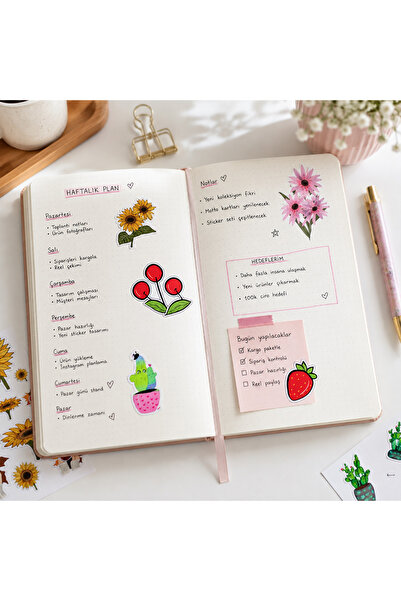 HAFTALIK PLAN
Pazartesi
• Toplantı notları
• Ürün fotoğrafları
Salı
• Siparişleri kargola
• Reel çekimi
Çarşamba
• Tasarım çalışması
• Müşteri mesajları
Perşembe
• Pazar hazırlığı
• Yeni sticker tasarımı
Cuma
• Ürün yükleme
• Instagram planlama
Cumartesi
• Pazar günü stand
Pazar
• Dinlenme zamanı
Notlar
• Yeni koleksiyon fikri
• Motto kartları yenilenecek
• Sticker seti çeşitlenecek
HEDEFLERİM
• Daha fazla insana ulaşmak
• Yeni ürünler çıkarmak
• 100k ciro hedefi
Bugün yapılacaklar
Kargo paketle
Sipariş kontrolü
Pazar hazırlığı
Reel paylaş